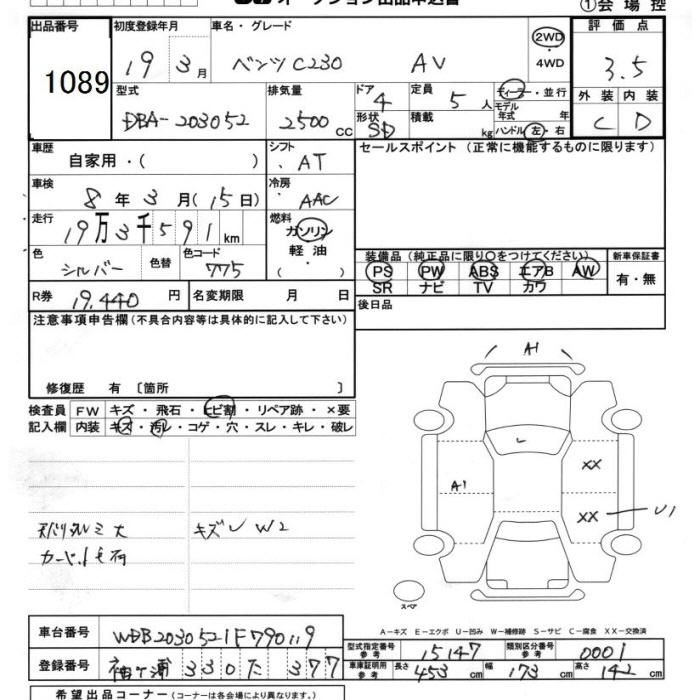 ①会場控
出品番号 初度登録年月 車名・グレード 評価点
1089 19 3月 ベンツ C230 AV 2WD 4WD 3.5
外装 内装
C D
型式 排気量 ドア 定員 ディーラー・並行
DBA-203052 2500cc 4 5人 モデル年式 年
形状 積載 kg ハンドル 左・右
SD
車歴 シフト セールスポイント(正常に機能するものに限ります)
自家用・( ) AT
車検 冷房
8年3月(15日) AAC
走行 燃料
19万3千591km ガソリン 軽・油 ( )
色 色替 色コード
シルバー 775
装備品(純正品に限り○をつけてください) 新車保証書
PS PW ABS エアB AW 有・無
SR ナビ TV カワ
R券 19,440円 名変期限 月 日 後日品
注意事項申告欄(不具合内容等は具体的に記入して下さい)
修復歴 有〔箇所 〕
検査員 FW キズ・飛石・ヒビ割・リペア跡・×要
記入欄 内装 キズ・汚レ・コゲ・穴・スレ・キレ・破レ
A1
A1
XX
XX U1
キズ W2
スペア
A-キズ E-エクボ U-凹み W-補修跡 S-サビ C-腐食 XX-交換済
車台番号 WDB2030521F790119
登録番号 袖ヶ浦 330 た 377
型式指定番号 参考 15147 類別区分番号 参考 0001
車庫証明用 参考 長さ 453cm 幅 173cm 高さ 142cm
希望出品コーナー(コーナーは各会場により異なります。)